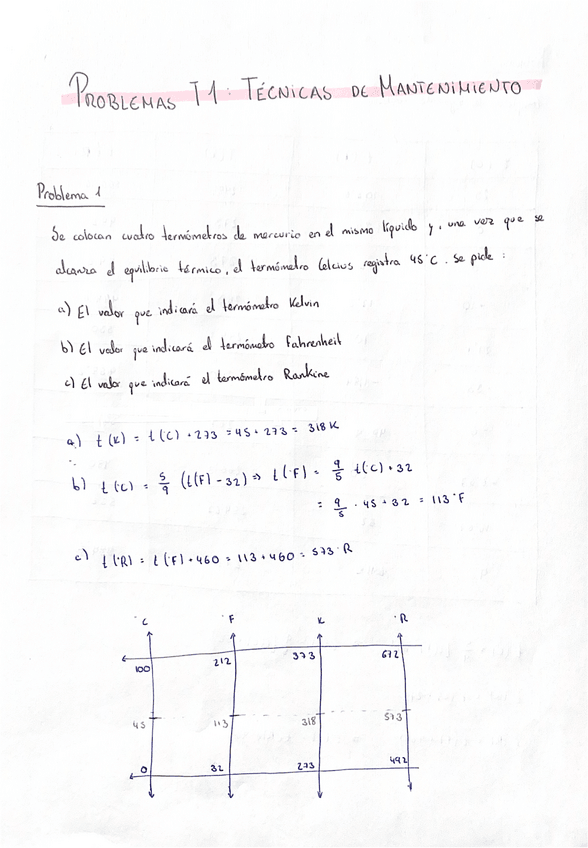 PROBLEMAS T1: TÉCNICAS DE MANTENIMIENTO
Problema 1
Se colocan cuatro termómetros de mercurio en el mismo líquido y, una vez que se
alcanza el equilibrio térmico, el termómetro Celcius registra 45°C. Se pide:
a) El valor que indicará el termómetro Kelvin
b) El valor que indicará el termómetro Fahrenheit
c) El valor que indicará el termómetro Rankine
a) t(K) = t(C) + 273 = 45 + 273 = 318 K
b) t(C) = 5/9 (t(F) - 32) ⇒ t(°F) = 9/5 t(C) + 32
= 9/5 · 45 + 32 = 113 °F
c) t(°R) = t(F) + 460 = 113 + 460 = 573 °R
°C °F K °R
100 212 373 672
45 113 318 573
0 32 273 492